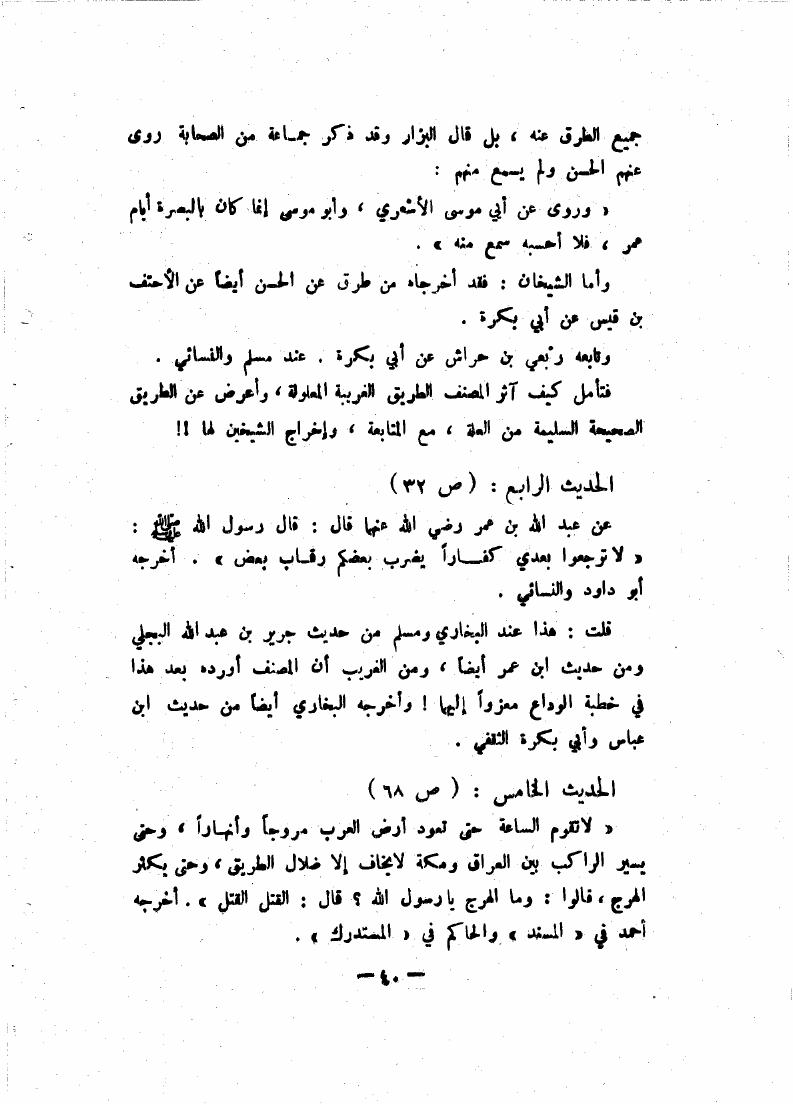 جميع الطرق عنه ، بل قال البزار وقد ذكر جماعة من الصحابة روى
عنهم الحسن ولم يسمع منهم :
« وروى عن أبي موسى الأشعري ، وأبو موسى إنما كان بالبصرة أيام
عمر ، فلا أحسبه سمع منه » .
وأما الشيخان : فقد أخرجاه من طرق عن الحسن أيضاً عن الأحنف
بن قيس عن أبي بكرة .
وتابعه ربعي بن حراش عن أبي بكرة . عند مسلم والنسائي .
فتأمل كيف آثر المصنف الطريق الغريبة المعلولة ، وأعرض عن الطريق
الصحيحة السليمة من العلة ، مع المتابعة ، وإخراج الشيخين لها !!
الحديث الرابع : ( ص ٣٢ )
عن عبد الله بن عمر رضي الله عنهما قال : قال رسول الله ﷺ :
« لا ترجعوا بعدي كفـــاراً يضرب بعضكم رقـاب بعض » . أخرجه
أبو داود والنسائي .
قلت : هذا عند البخاري ومسلم من حديث جرير بن عبد الله البجلي
ومن حديث ابن عمر أيضاً ، ومن الغريب أن المصنف أورده بعد هذا
في خطبة الوداع معزواً إليها ! وأخرجه البخاري أيضاً من حديث ابن
عباس وأبي بكرة الثقفي .
الحديث الخامس : ( ص ٦٨ )
« لاتقوم الساعة حتى تعود أرض العرب مروجاً وأنهاراً ، وحتى
يسير الراكب بين العراق ومكة لايخاف إلا ضلال الطريق ، وحتى يكثر
الهرج ، قالوا : وما الهرج يا رسول الله ؟ قال : القتل القتل » . أخرجه
أحمد في « المسند » والحاكم في « المستدرك » .
— ٤٠ —